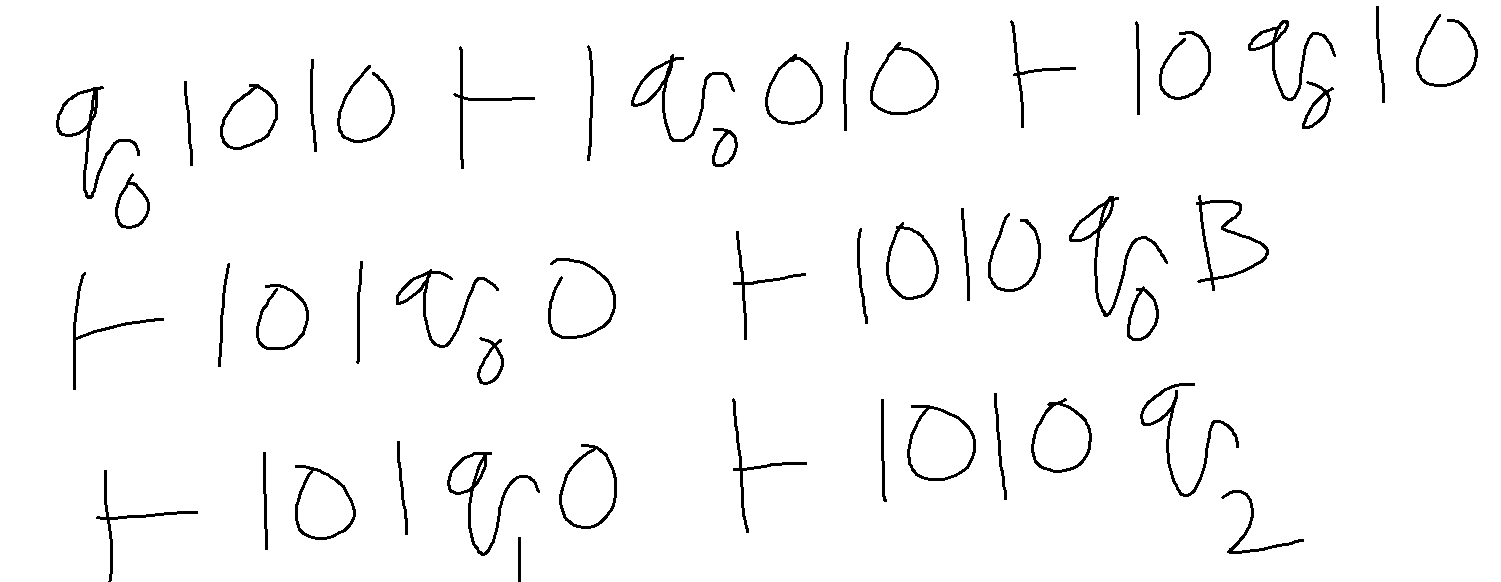 q₀1010 ⊢ 1q₀010 ⊢ 10q₀10
⊢ 101q₀0 ⊢ 1010q₀B
⊢ 101q₁0 ⊢ 1010q₂